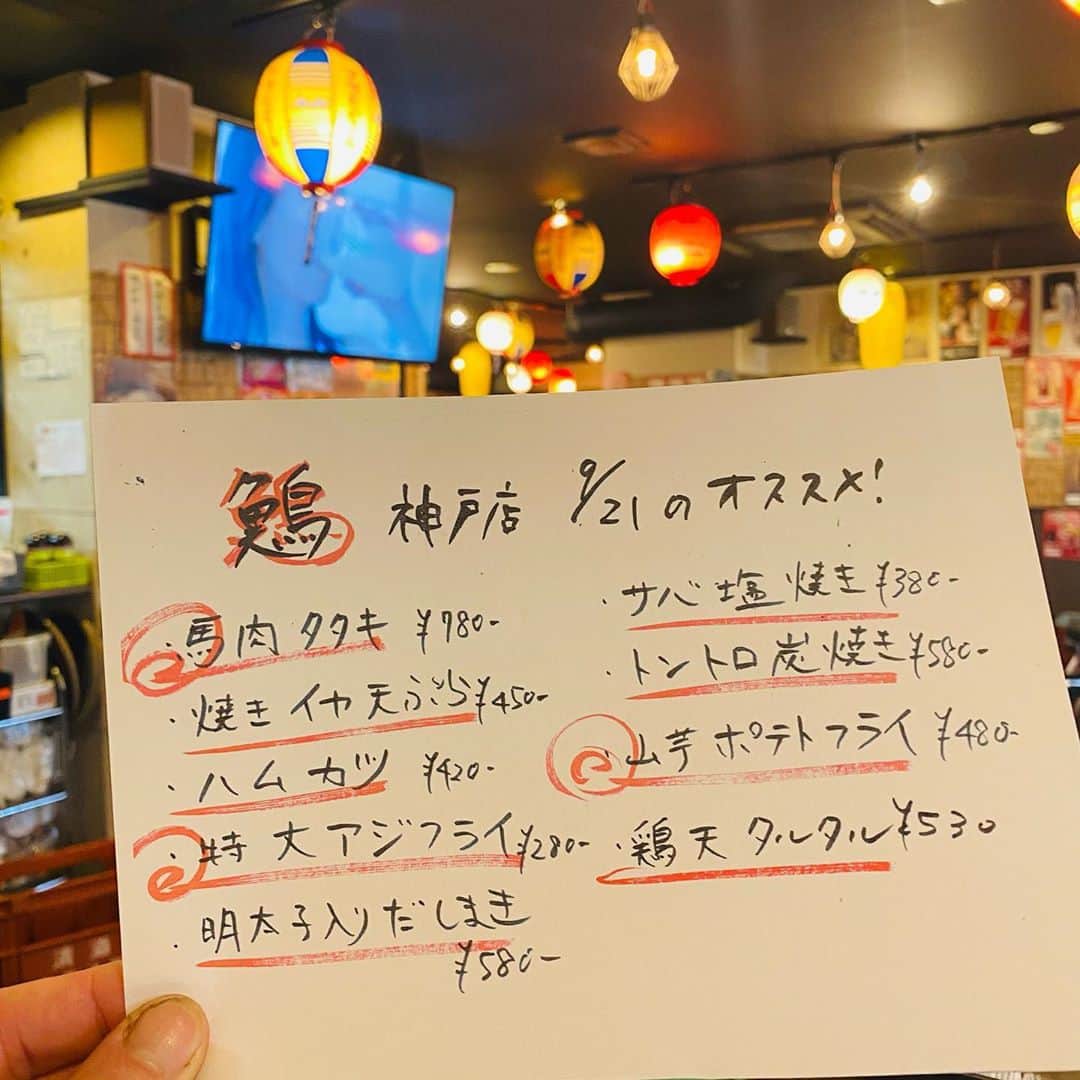 鷠 神戸店 9/21のオススメ!
・馬肉タタキ ¥780-
・焼きイカ天ぷら¥450-
・ハムカツ ¥420-
・特大アジフライ¥280-
・明太子入りだしまき
¥580-
・サバ塩焼き¥380-
・トントロ炭焼き¥580-
・山芋ポテトフライ ¥480-
・鶏天タルタル¥530